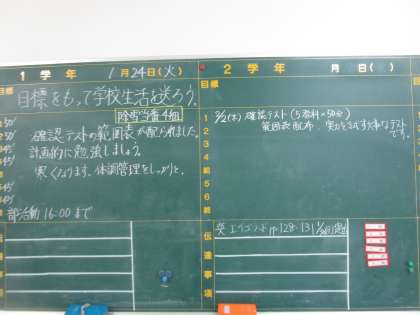 1 学年 1月24日(火)
目標をもって学校生活を送ろう。
除雪当番 4組
確認テストの範囲表が配られました。
計画的に勉強しましょう。
寒くなります。体調管理をしっかりと。
部活動 16:00 まで
伝達事項
2 学年 月 日( )
目標
1
2
3
4
給
5
6
2/2(木) 確認テスト(5教科×50分)
範囲表配布、実力をためす大事なテスト
です。
伝達事項
英 エイゴノート p.128-131